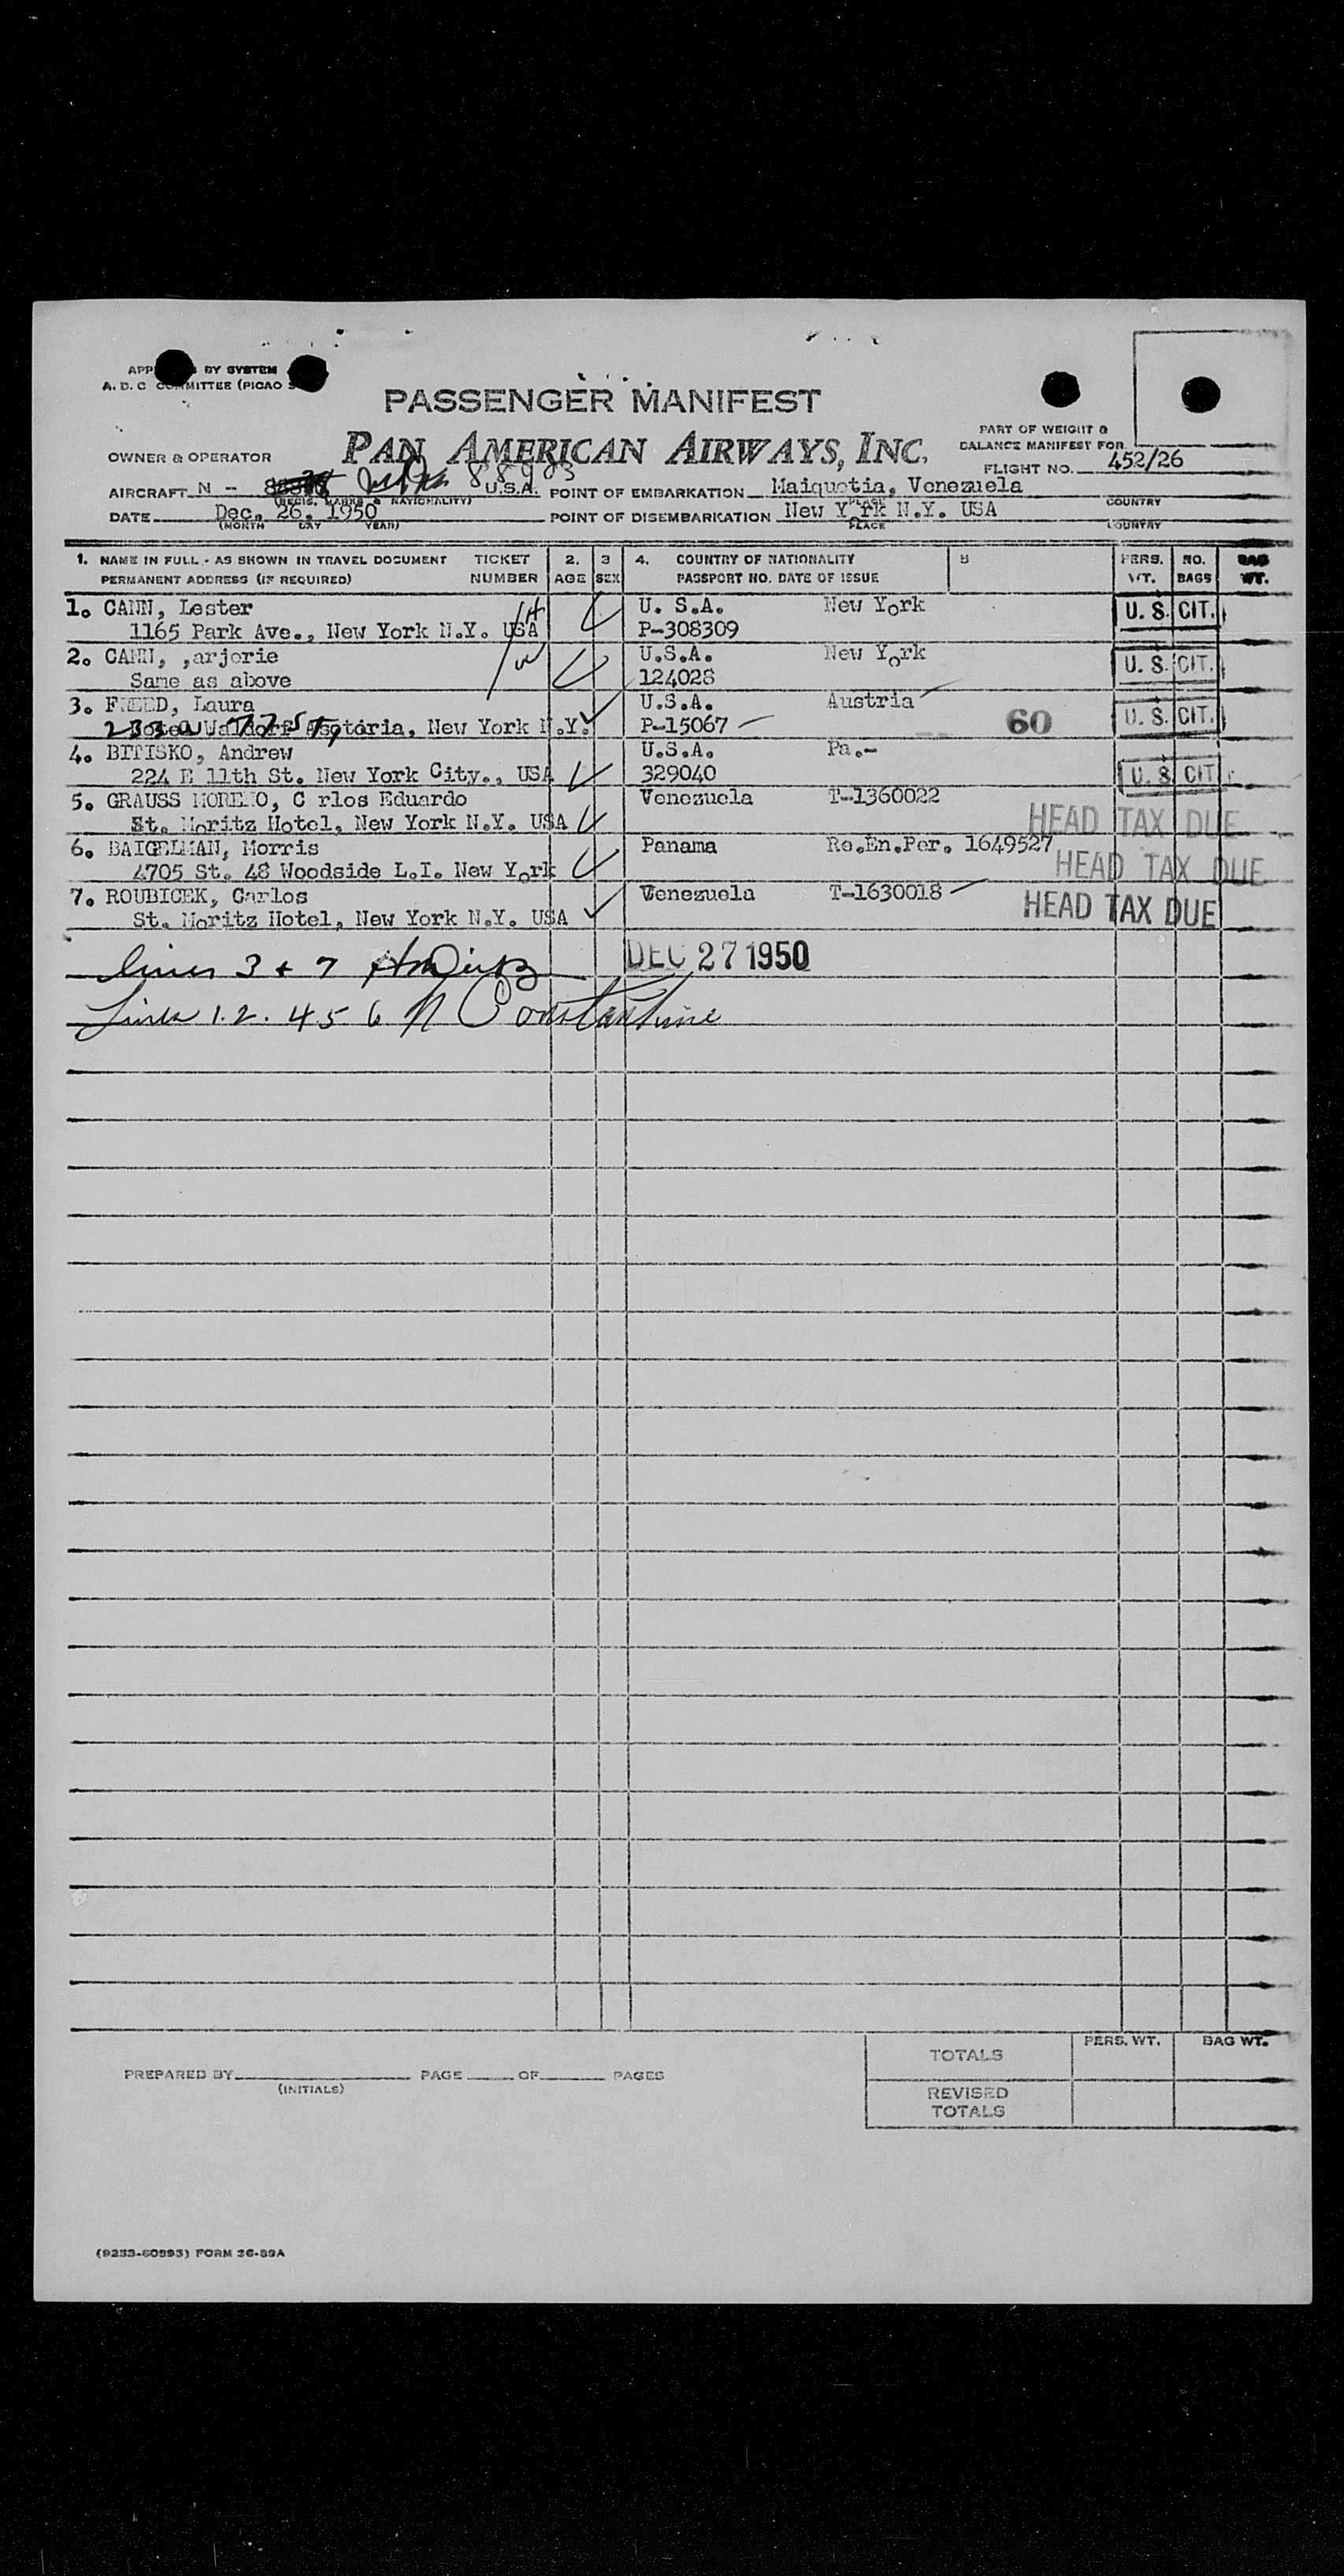 BY SYSTEM
A. D. C COMMITTEE (PICAO
PASSENGER MANIFEST
PAN AMERICAN AIRWAYS, INC.
PART OF WEIGHT &
BALANCE MANIFEST FOR
OWNER & OPERATOR
FLIGHT NO. 452/26
AIRCRAFT N - 88983 U.S.A. POINT OF EMBARKATION Maiquetia, Venezuela
(REGIS. MARKS & NATIONALITY) PLACE COUNTRY
DATE Dec. 26. 1950 POINT OF DISEMBARKATION New York N.Y. USA
(MONTH DAY YEAR) PLACE COUNTRY
1. NAME IN FULL - AS SHOWN IN TRAVEL DOCUMENT TICKET 2. 3 4. COUNTRY OF NATIONALITY 5 PERS. NO. BAG
PERMANENT ADDRESS (IF REQUIRED) NUMBER AGE SEX PASSPORT NO. DATE OF ISSUE WT. BAGS WT.
1. CANN, Lester U. S.A. New York U. S. CIT.
1165 Park Ave., New York N.Y. USA P-308309
2. CANN, ,arjorie U.S.A. New York U. S. CIT.
Same as above 124028
3. FREED, Laura U.S.A. Austria U. S. CIT.
Waldorf Asotoria, New York N.Y. P-15067 60
4. BITISKO, Andrew U.S.A. Pa.-
224 E 11th St. New York City., USA 329040 U. S. CIT
5. GRAUSS MORENO, C rlos Eduardo Venezuela T-1360022
St. Moritz Hotel, New York N.Y. USA HEAD TAX DUE
6. BAIGELMAN, Morris Panama Re.En.Per. 1649527
4705 St. 48 Woodside L.I. New York HEAD TAX DUE
7. ROUBICEK, Carlos Venezuela T-1630018
St. Moritz Hotel, New York N.Y. USA HEAD TAX DUE
lines 3 + 7 DEC 27 1950
Lines 1. 2. 4 5 6 N Constantine
TOTALS PERS. WT. BAG WT.
PREPARED BY PAGE OF PAGES
(INITIALS)
REVISED
TOTALS
(9233-60993) FORM 36-89A